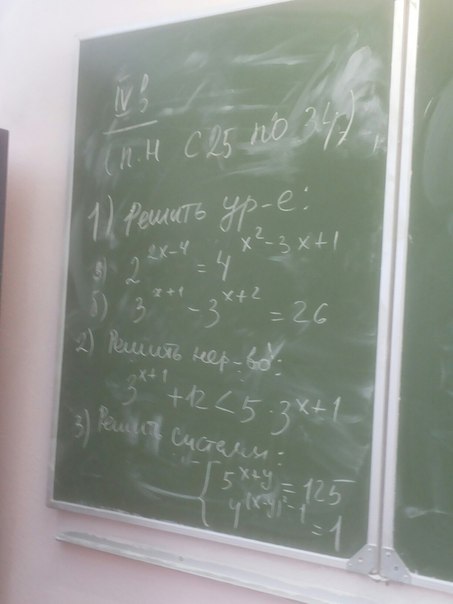 IV 3
(п.н с 25 по 34)
1) Решить ур-е:
а) 2^{2x-4} = 4^{x^2-3x+1}
б) 3^{x+1} - 3^{x+2} = 26
2) Решить нер-во:
3^{x+1} + 12 < 5 · 3^{x+1}
3) Решить системы:
{ 5^{x+y} = 125
4^{(x-y)^2-1} = 1